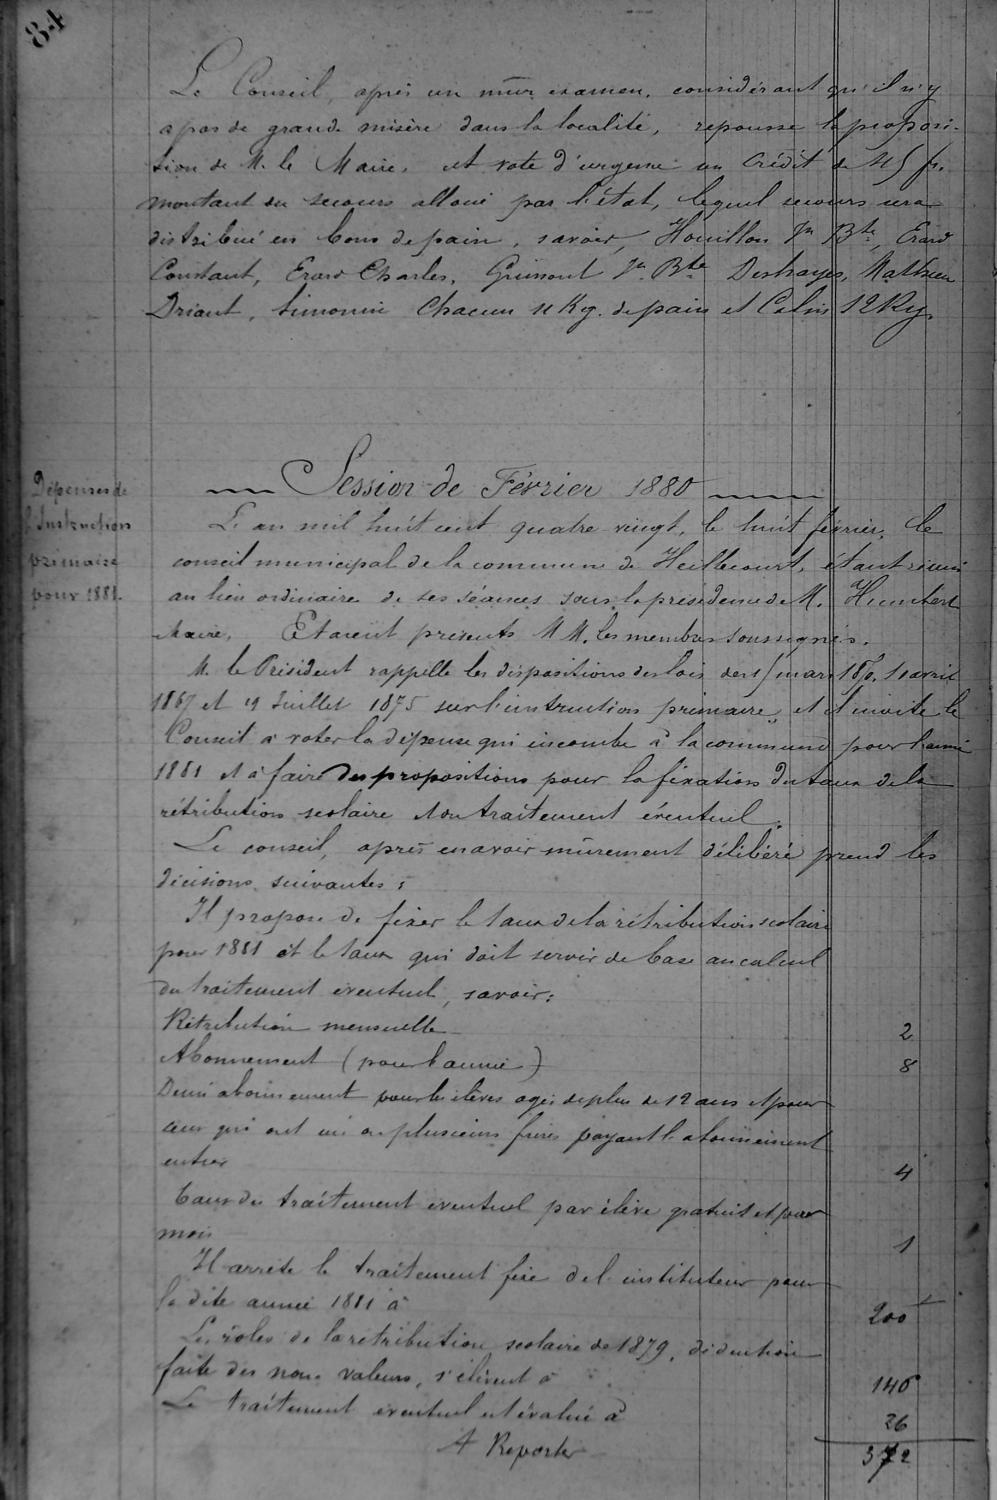 84
Le Conseil, après un mûr examen, considérant qu'il n'y
a pas de grande misère dans la localité, repousse la proposi-
tion de M. le Maire, et vote d'urgence un Crédit de fr.
montant du secours alloué par l'état, lequel secours sera
distribué en bons de pain, savoir, Houillon Jn Bte, Erard
Constant, Erard Charles, Jn Bte Deshayes, Mathieu
Driant, Simonin Chacun 11 Kg. de pain et Colin 12 Kg.
Dépenses de
l'Instruction
primaire
pour 1881.
Session de Février 1880
L'an mil huit cent quatre vingt, le huit février, le
conseil municipal de la commune de Heillecourt, étant réuni
au lieu ordinaire de ses séances sous la présidence de M. Humbert
Maire, Etaient présents MM. les membres soussignés.
M. le Président rappelle les dispositions des lois des 15 mars 1850, 10 avril
1867 et 19 Juillet 1875 sur l'instruction primaire, et il invite le
Conseil à voter la dépense qui incombe à la commune pour l'année
1881 et à faire des propositions pour la fixation du taux de la
rétribution scolaire et du traitement éventuel.
Le conseil, après en avoir mûrement délibéré prend les
décisions suivantes :
Il propose de fixer le taux de la rétribution scolaire
pour 1881 et le taux qui doit servir de base au calcul
du traitement éventuel, savoir:
Rétribution mensuelle 2
Abonnement (pour l'année) 8
Demi abonnement pour les élèves agés de plus de 12 ans et pour
ceux qui ont un ou plusieurs frères payant l'abonnement
entier 4
Taux du traitement éventuel par élève gratuit et par
mois 1
Il arrête le traitement fixe de l'instituteur pour
la dite année 1881 à 200
Les rôles de la rétribution scolaire de 1879, déduction
faite des non-valeurs, s'élèvent à 146
Le traitement éventuel est évalué à 26
A Reporter 372